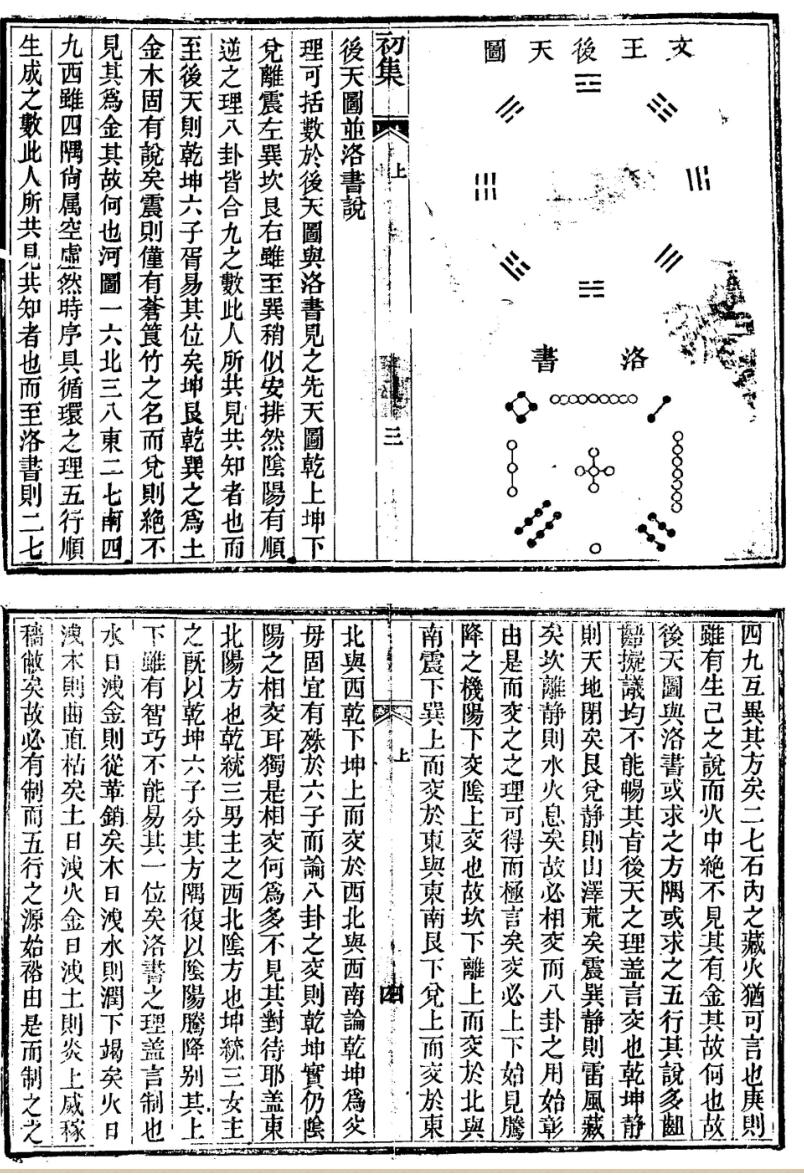 文王後天圖
洛書
初集
上
三
後天圖並洛書說
理可括數於後天圖與洛書見之先天圖乾上坤下
兌離震左巽坎艮右雖至巽稍似安排然陰陽有順
逆之理八卦皆合九之數此人所共見共知者也而
至後天則乾坤六子胥易其位矣坤艮乾巽之爲土
金木固有說矣震則僅有蒼筤竹之名而兌則絕不
見其爲金其故何也河圖一六北三八東二七南四
九西雖四隅尙属空虛然時序具循環之理五行順
生成之數此人所共見共知者也而至洛書則二七
四九互異其方矣二七石內之藏火猶可言也庚則
雖有生己之說而火中絕不見其有金其故何也故
後天圖與洛書或求之方隅或求之五行其說多齟
齬擬議均不能暢其旨後天之理蓋言交也乾坤靜
則天地閉矣艮兌靜則山澤荒矣震巽靜則雷風藏
矣坎離靜則水火息矣故必相交而八卦之用始彰
由是而交之之理可得而極言矣交必上下始見騰
降之機陽下交陰上交也故坎下離上而交於北與
南震下巽上而交於東與東南艮下兌上而交於東
上
四
北與西乾下坤上而交於西北與西南論乾坤爲父
毋固宜有殊於六子而論八卦之交則乾坤實仍陰
陽之相交耳獨是相交何爲多不見其對待耶蓋東
北陽方也乾統三男主之西北陰方也坤統三女主
之旣以乾坤六子分其方隅復以陰陽騰降别其上
下雖有智巧不能易其一位矣洛書之理蓋言制也
水日洩金則從革銷矣木日洩水則潤下竭矣火日
洩木則曲直枯矣土日洩火金日洩土則炎上威稼
穡倣矣故必有制而五行之源始裕由是而制之之